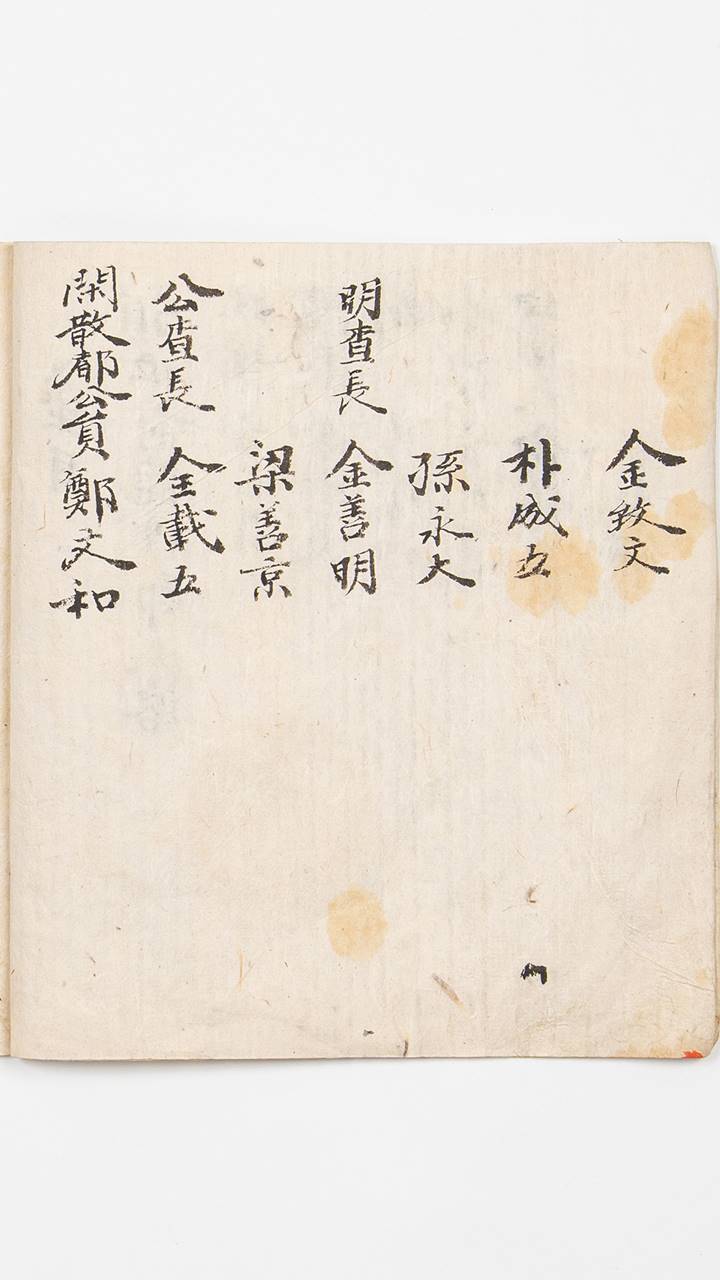 金致文
朴成五
孫永大
明査長 金善明
梁善京
公査長 全載五
閑散都公員 鄭文和